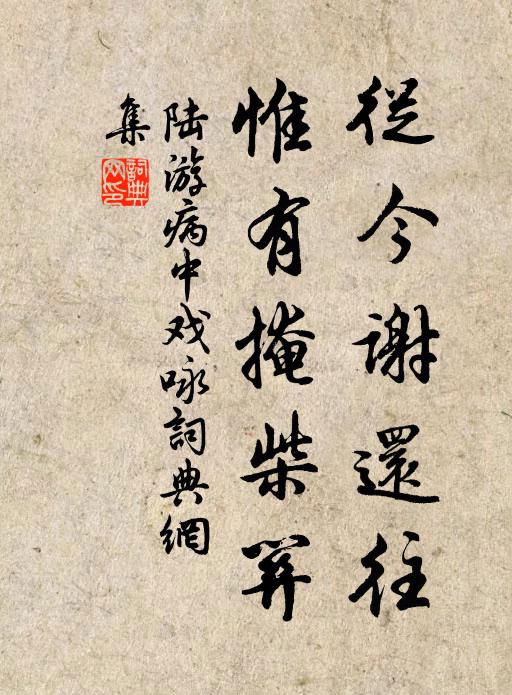 從今謝還往
惟有掩柴荆
陆游病中戏咏詞典網
集
詞典網印